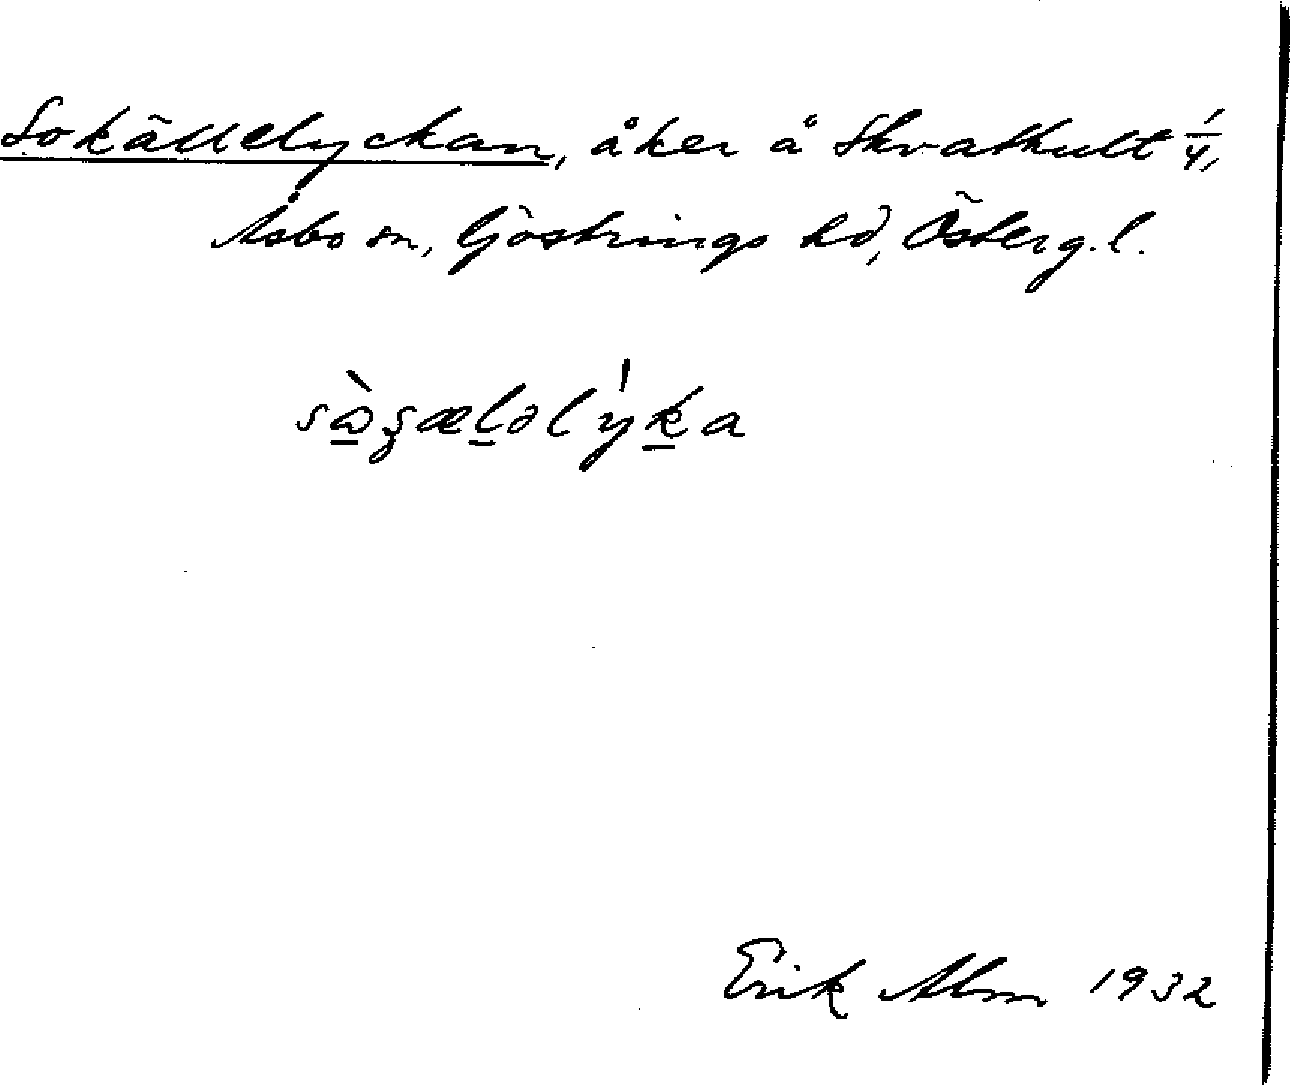 Sokällelyckan, åker å Skvathult 1/4,
Åsbo sn, Göstrings hd, Österg.l.
Erik Alm 1932